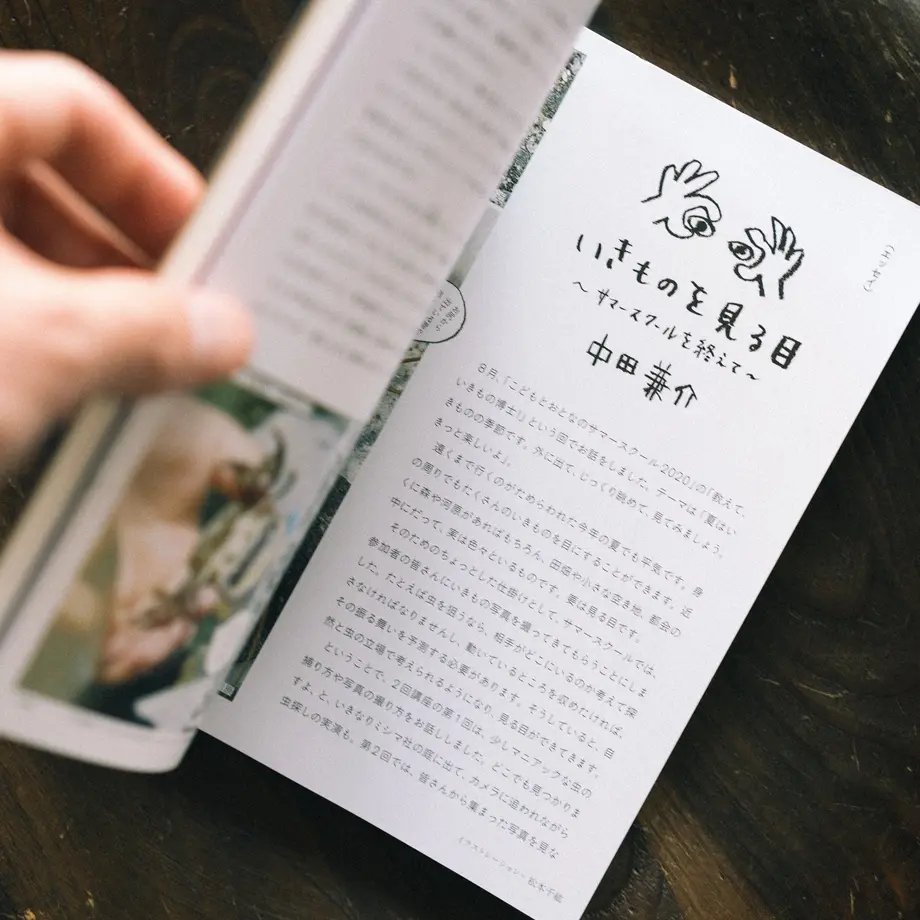 (エッセイ)
いきものを見る目
〜サマースクールを終えて〜
中田兼介
8月、「こどもとおとなのサマースクール2020」の「教えて、
いきもの博士!」という回でお話をしました。テーマは「夏はい
きものの季節です。外に出て、じっくり眺めて、見てみましょう。
きっと楽しいよ」。
遠くまで行くのがためらわれた今年の夏でも平気です。身
の周りでもたくさんのいきものを目にすることができます。近
くに森や河原があればもちろん、田畑や小さな空き地、都会の
中にだって、実は色々といるものです。要は見る目です。
そのためのちょっとした仕掛けとして、サマースクールでは、
参加者の皆さんにいきもの写真を撮ってきてもらうことにしま
した。たとえば虫を狙うなら、相手がどこにいるのか考えて探
さなければなりませんし、動いているところを収めたければ、
その振る舞いを予測する必要があります。そうしていると、自
然と虫の立場で考えられるようになり、見る目ができてきます。
ということで、2回講座の第1回は、少しマニアックな虫の
捕り方や写真の撮り方をお話ししました。どこでも見つかりま
すよ、と、いきなりミシマ社の庭に出て、カメラに追われながら
虫探しの実演も。第2回では、皆さんから集まった写真を見な
イラストレーション 松本千紘